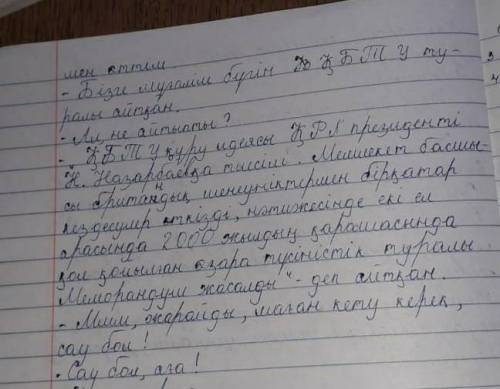 мен өттім.
- Бізге мұғалім бүгін ҚБТУ ту-
ралы айтқан.
- Ал, не айтыпты?
- ҚБТУ құру идеясы ҚР президенті
Н. Назарбаевқа тиесілі. Мемлекет басшы-
сы британдық шенеуніктермен бірқатар
кездесулер өткізді, нәтижесінде екі ел
арасында 2000 жылдың қарашасында
қол қойылған өзара түсіністік туралы
Меморандум жасалды" - деп айтқан.
- Ммм, жарайды, маған кету керек,
сау бол!
- Сау бол, аға!